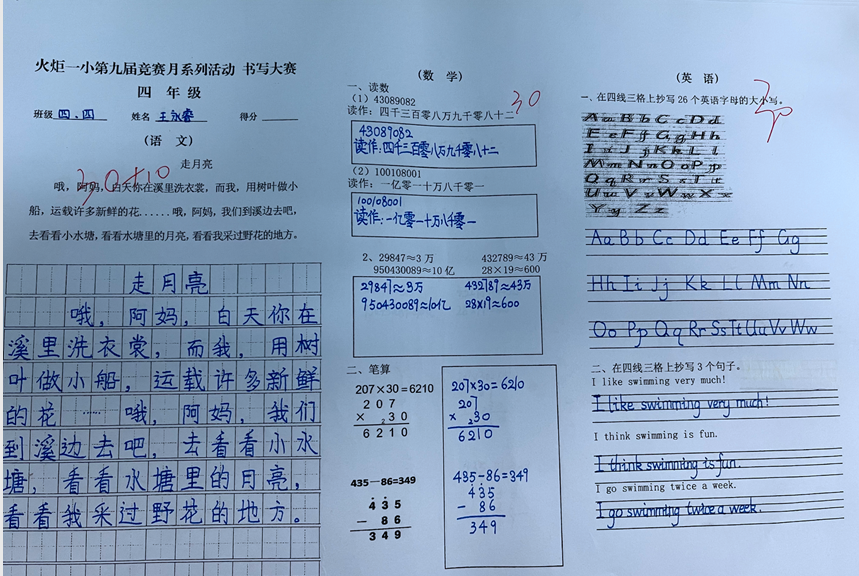 火炬一小第九届竞赛月系列活动 书写大赛
四 年 级
班级 四.四 姓名 王永睿 得分
(语 文)
30+10
走月亮
哦，阿妈，白天你在溪里洗衣裳，而我，用树叶做小
船，运载许多新鲜的花......哦，阿妈，我们到溪边去吧，
去看看小水塘，看看水塘里的月亮，看看我采过野花的地方。
走月亮
哦，阿妈，白天你在
溪里洗衣裳，而我，用树
叶做小船，运载许多新鲜
的花......哦，阿妈，我们
到溪边去吧，去看看小水
塘，看看水塘里的月亮，
看看我采过野花的地方。
(数 学)
一、读数
(1) 43089082
30
读作：四千三百零八万九千零八十二
43089082
读作：四千三百零八万九千零八十二
(2) 100108001
读作：一亿零一十万八千零一
100108001
读作：一亿零一十万八千零一
2、29847≈3万 432789≈43万
950430089≈10亿 28×19≈600
29847≈3万 432789≈43万
950430089≈10亿 28×19≈600
二、笔算
207×30=6210
2 0 7
× 2 3 0
6 2 1 0
207×30=6210
207
× 2 30
6210
435－86=349
4 3 5
－ 8 6
3 4 9
435-86=349
435
- 86
349
(英 语)
一、在四线三格上抄写26个英语字母的大小写。
30
A a B b C c D d
E e F f G g H h
I i J j K k L l
M m N n O o P p
Q q R r S s T t
U u V v W w X x
Y y Z z
Aa Bb Cc Dd Ee Ff Gg
Hh Ii Jj Kk Ll Mm Nn
Oo Pp Qq Rr Ss Tt Uu Vv Ww
二、在四线三格上抄写3个句子。
I like swimming very much!
I like swimming very much!
I think swimming is fun.
I think swimming is fun.
I go swimming twice a week.
I go swimming twice a week.